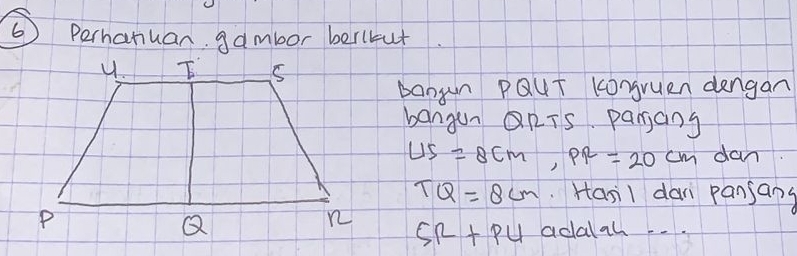 6 Perhatikan gambar berikut.
U T S
bangun PQUT kongruen dengan
bangun QRTS. panjang
US = 8 cm, PR = 20 cm dan
TQ = 8 cm. Hasil dari panjang
SR + PU adalah ...
P Q R